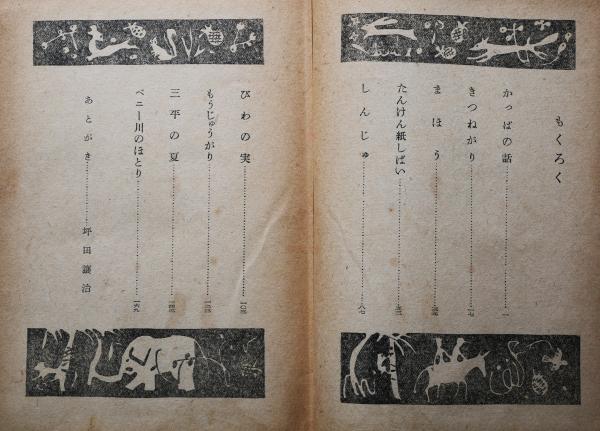 もくろく
かっぱの話…………一
きつねがり…………一七
まほう
たんけん紙しばい
しんじゅ…………八七
びわの実…………一〇三
もうじゅうがり
三平の夏
ペニー川のほとり…………一六九
あとがき…………坪田譲治